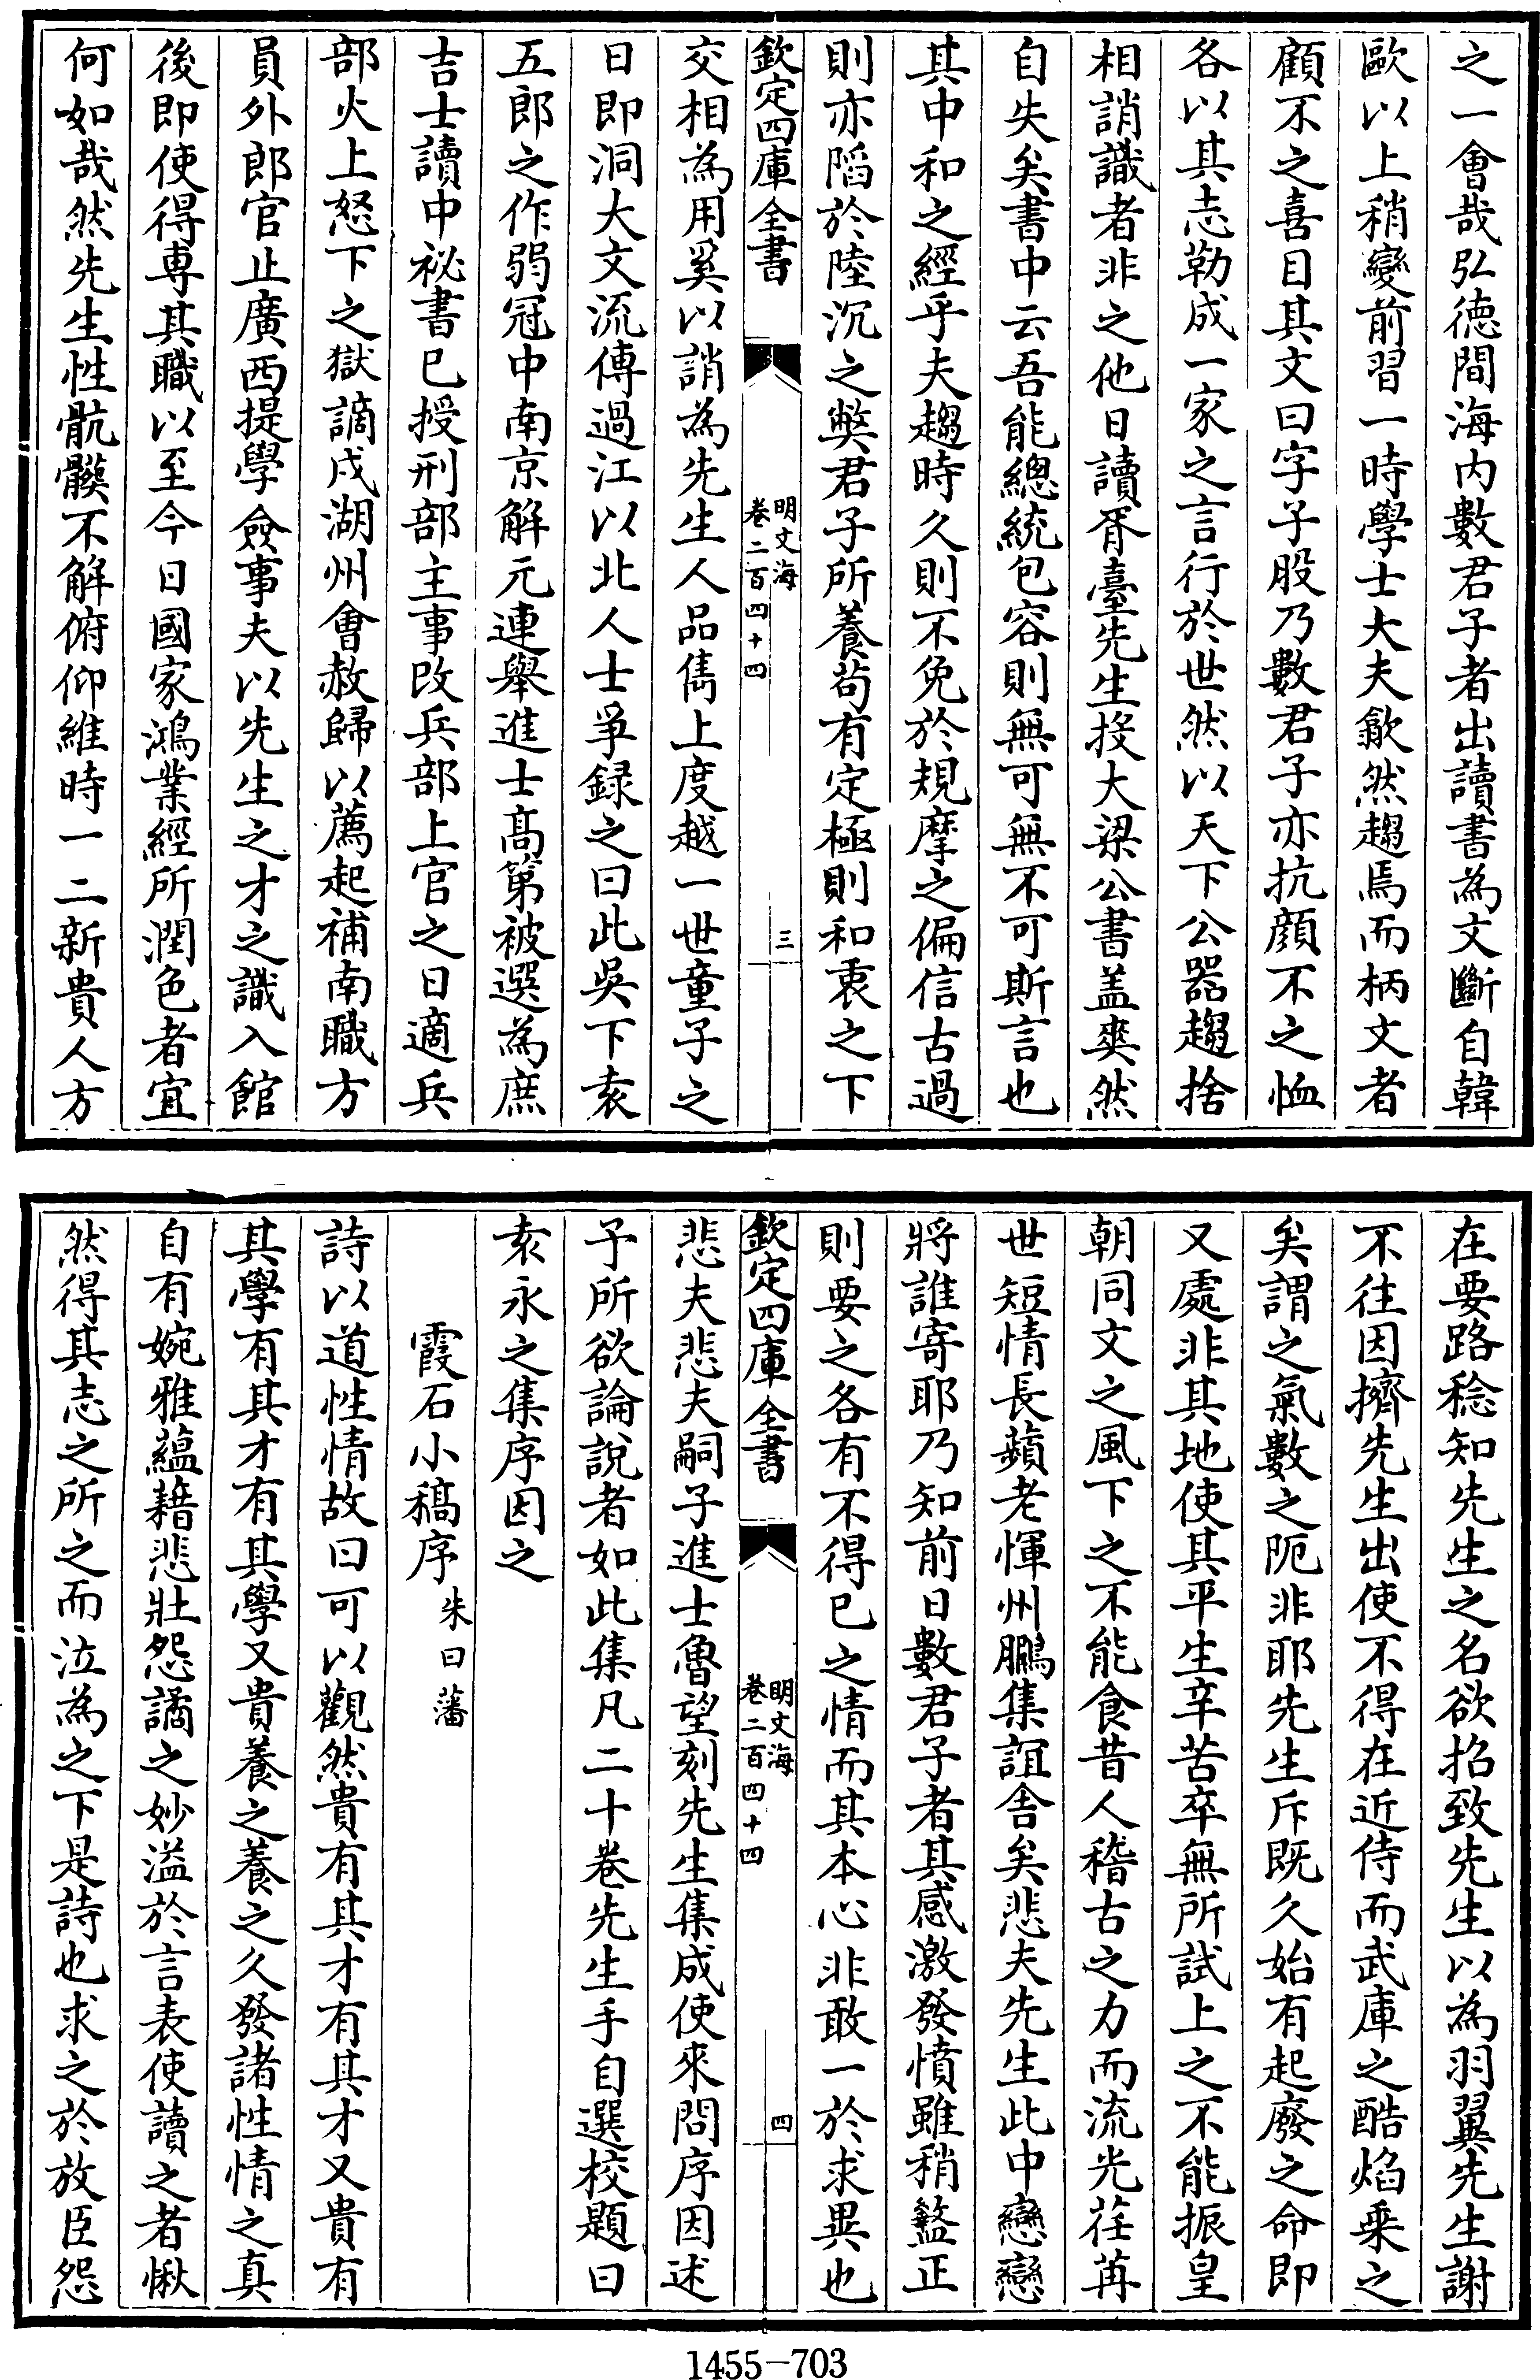 之一會哉弘德間海内數君子者出讀書為文斷自韓
歐以上稍變前習一時學士大夫歙然趨焉而柄文者
顧不之喜目其文曰字子股乃數君子亦抗顔不之恤
各以其志勒成一家之言行於世然以天下公器趨捨
相誚識者非之他日讀胥臺先生授大梁公書盖爽然
自失矣書中云吾能總統包容則無可無不可斯言也
其中和之經乎夫趨時久則不免於規摩之偏信古過
則亦䧟於陸沉之弊君子所養茍有定極則和衷之下
欽定四庫全書
明文海
卷二百四十四
三
交相為用奚以誚為先生人品雋上度越一世童子之
日即洞大文流傳過江以北人士爭録之曰此吳下袁
五郎之作弱冠中南京解元連舉進士髙第被選為庶
吉士讀中祕書已授刑部主事改兵部上官之日適兵
部火上怒下之獄謫戍湖州會赦歸以薦起補南職方
員外郎官止廣西提學僉事夫以先生之才之識入館
後即使得專其職以至今日國家鴻業經所潤色者宜
何如哉然先生性骯髒不解俯仰維時一二新貴人方
在要路稔知先生之名欲招致先生以為羽翼先生謝
不往因擠先生出使不得在近侍而武庫之酷焰乗之
矣謂之氣數之阨非耶先生斥既久始有起廢之命即
又處非其地使其平生辛苦卒無所試上之不能振皇
朝同文之風下之不能食昔人稽古之力而流光荏苒
世短情長蘋老惲州鵩集誼舍矣悲夫先生此中戀戀
將誰寄耶乃知前日數君子者其感激發憤雖稍盭正
則要之各有不得已之情而其本心非敢一於求異也
欽定四庫全書
明文海
卷二百四十四
四
悲夫悲夫嗣子進士魯望刻先生集成使來問序因述
予所欲論說者如此集凡二十卷先生手自選校題曰
袁永之集序因之
霞石小稿序 朱曰藩
詩以道性情故曰可以觀然貴有其才有其才又貴有
其學有其才有其學又貴養之養之久發諸性情之真
自有婉雅藴藉悲壯怨譎之妙溢於言表使讀之者愀
然得其志之所之而泣為之下是詩也求之於放臣怨
1455—703